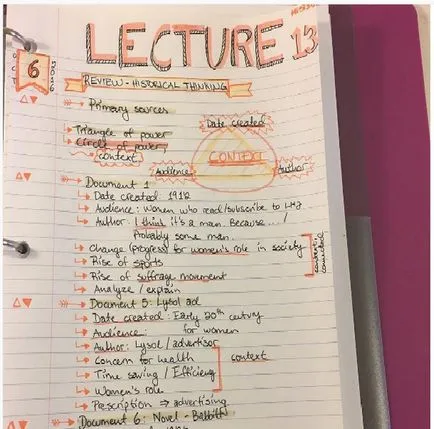 LECTURE 13
OCT
6
2016
REVIEW - HISTORICAL THINKING
Primary sources
Date created
Triangle of power
Circle of power
context
CONTEXT
Audience
Author
Document 1
Date created 1912
Audience: Women who read/subscribe to LHJ
Author: I think it's a man. Because... /
Probably some man.
Change (progress) for women's role in society
Rise of sports
Rise of suffrage movement
Analyze / explain
Document 5: Lysol ad
Date created: Early 20th century
Audience: for women
Author: Lysol / advertisor
Concern for health
context
Time saving / Efficiency
Women's role
Prescription ⇒ advertising
Document 6: Novel - Babbitt